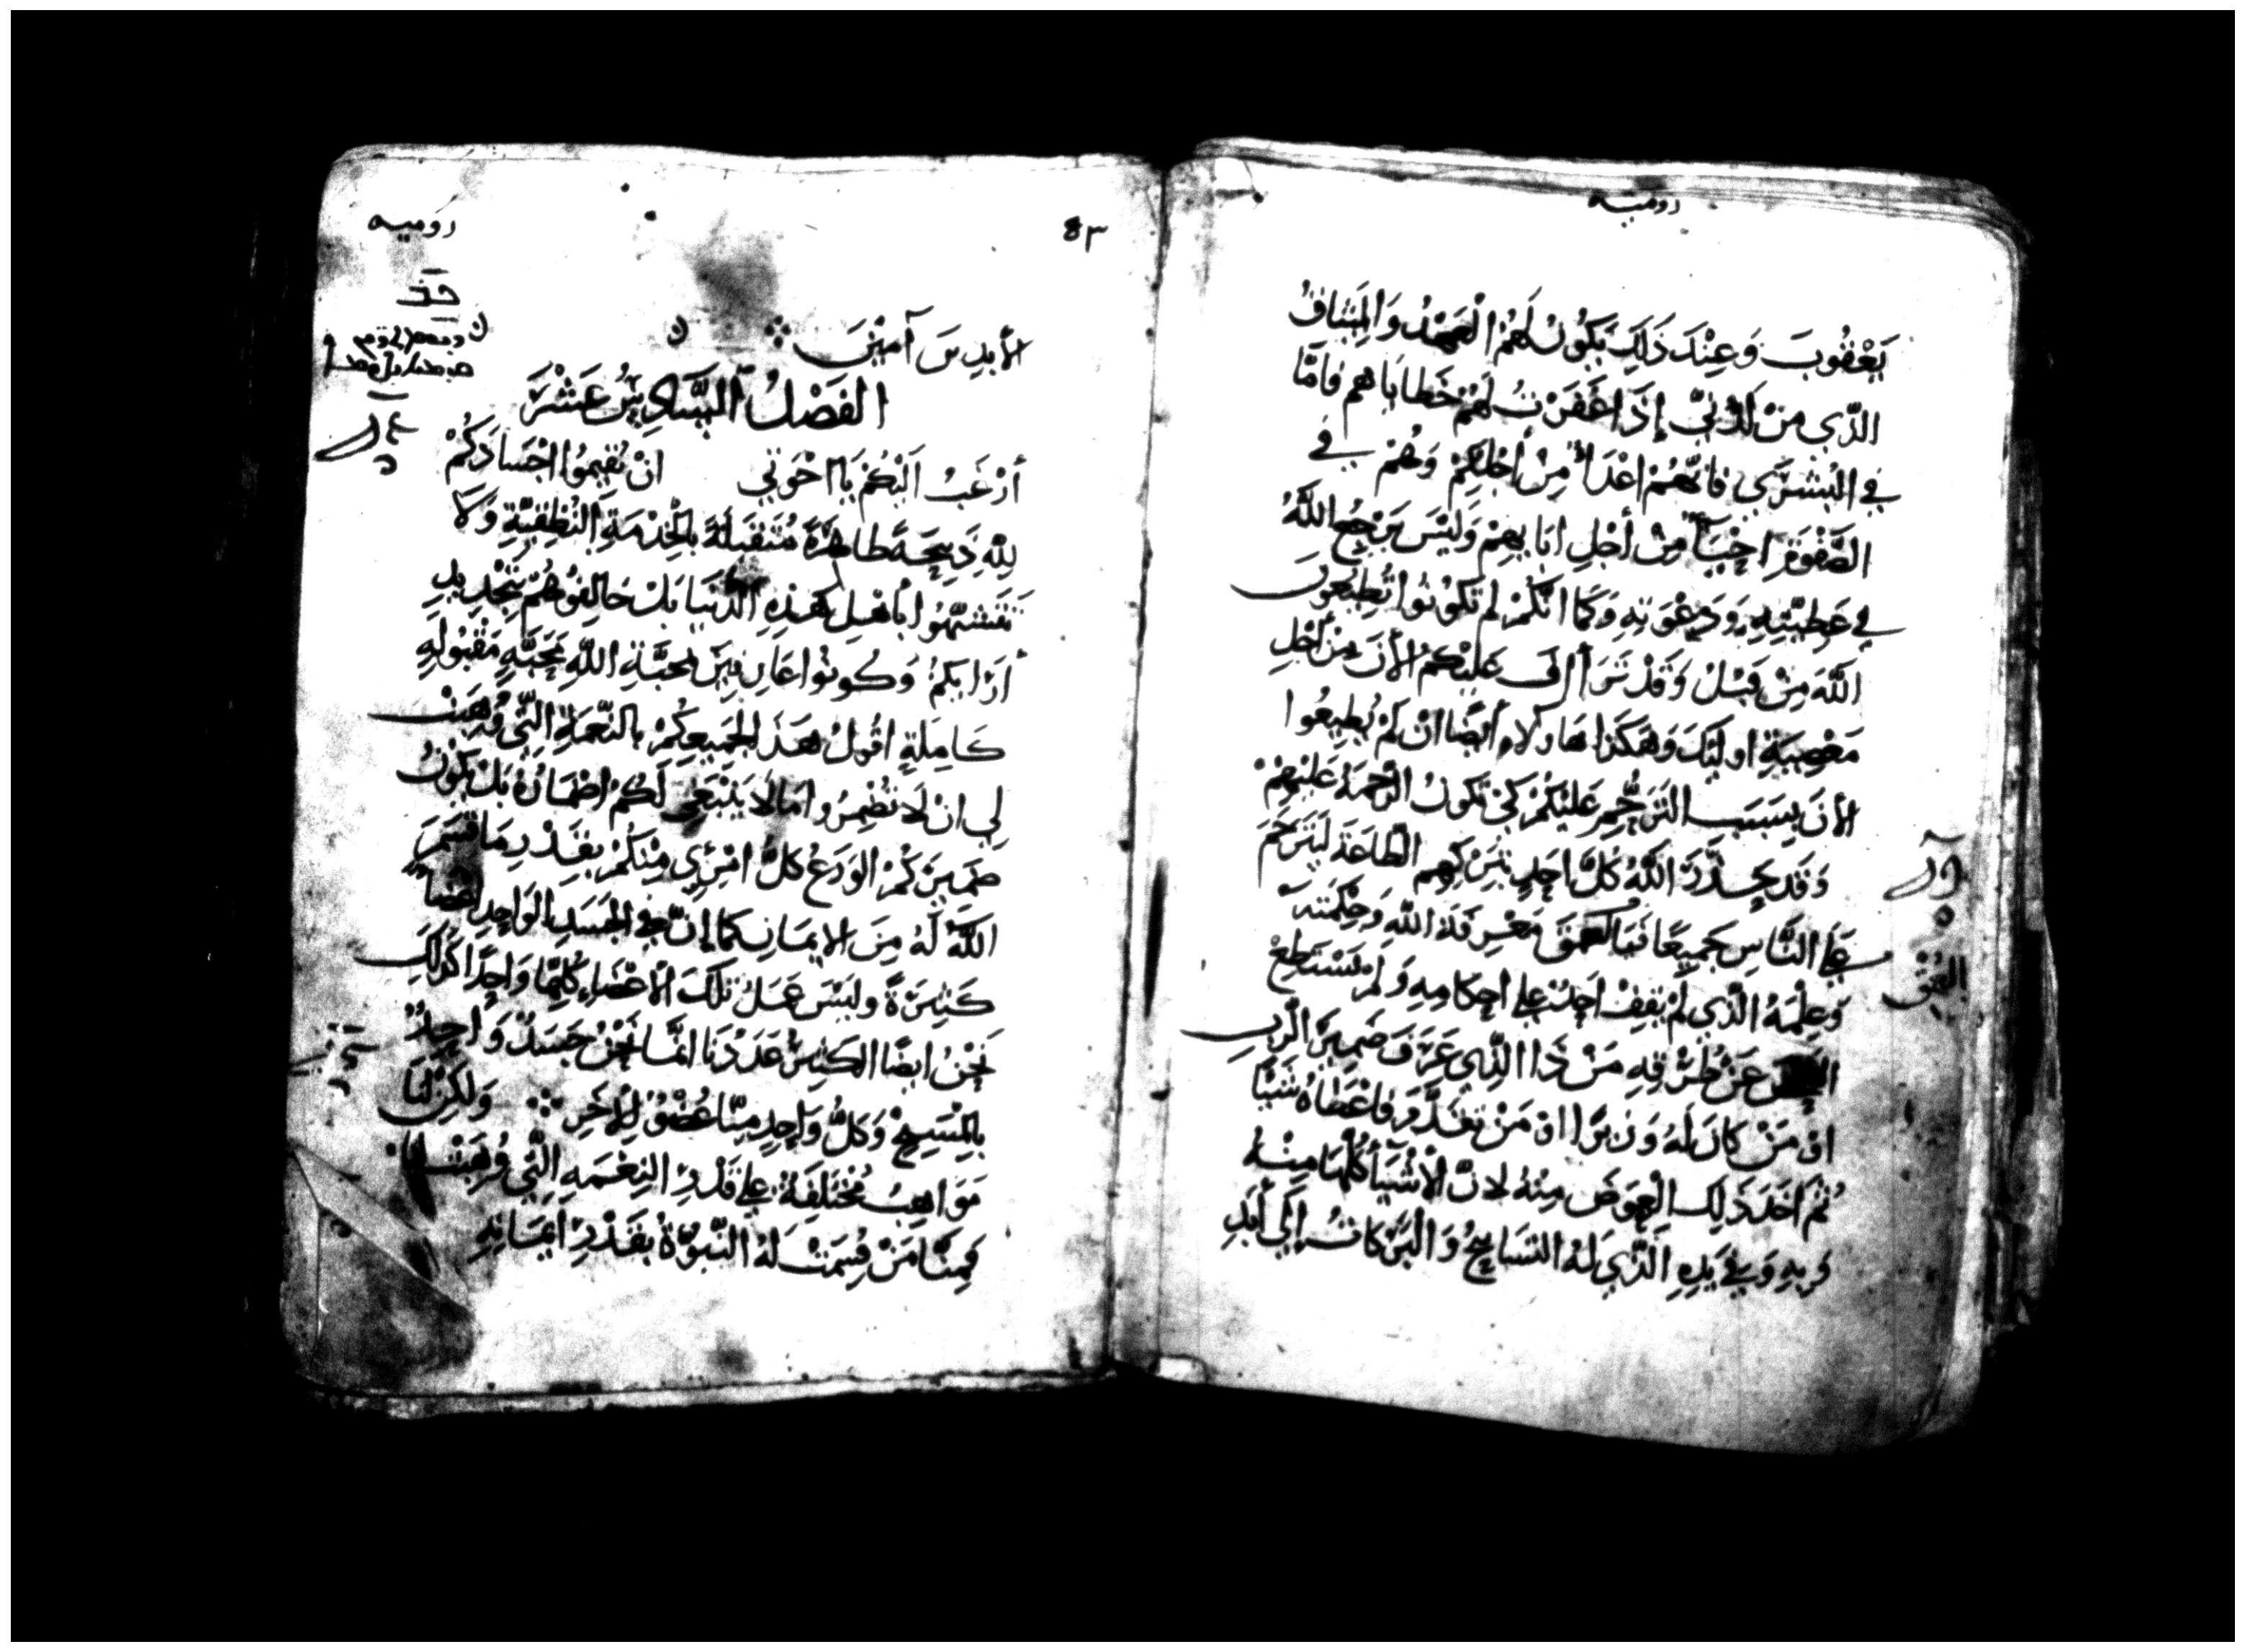 روميه
يَعْقُوبَ وَعِنْدَ ذَلِكَ يَكُونُ لَهُمُ الْعَهْدُ وَالمِيثَاقُ
الذّي مِنْ لَدُنّيِ إِذَا غَفَرْتُ لَهُمْ خَطَايَاهم فَامَّا
فِي البُشْرَي فَانَّهُمْ اعْدَاءٌ مِنْ أَجْلِكُمْ وَهُمْ فِي
الصَّفْوَةِ احِبَّآءٌ مِنْ أَجْلِ ابَايهِمْ وَلَيْسَ يَرْجِعُ اللَّهُ
فِي عَطِيَّتِهِ وَدَعْوَتِهِ وَكَمَا انَّكُمْ لم تَكُوْنُوا تُطِيعُونَ
اللَّهَ مِنْ قَبْلُ وَقَدْ تَرَأَّفَ عَلَيْكمُ الأنَ مِنْ أَجْلِ
مَعْصِيَةِ اوليِكَ وَهَكَذا هَاولاءِ أَيضًا ان لَمْ يُطِيعُوا
الأنَ بِسَبَبِ التَرَحُّمِ عَلَيْكُمْ كَيْ تَكُونَ الرَّحْمَةُ عَلَيْهِمْ
وَقَد اللَّهُ كُلَّ احَدٍ الطَّاعَةَ لَيَتَرَحَمَ
عَلَى النَّاسِ جَمِيعًا فَيَا لَعُمْقَ مَعْرِفَةِ اللَّهِ وَحِكْمَتهَ
العُمْق
وَعِلْمَهُ الَّذي لَمْ يَقِفْ احَدٌ عَلى احكامِهِ وَلم يَسْتَطِعْ
عَنْ طُرُقِهِ مَنْ ذَا الذَّي عَرَفَ ضَمِيرَ الرَّبِ
اوْ مَنْ كَانَ لَهُ وَزِيرًا اوْ مَنْ تَقَدَّمَ فَاعْطَاهُ شَيًا
ثُمَ اخَدَ ذَلِكَ الْعِوَضَ مِنْهُ لانّ الْاشْيَأَ كُلَّهَا مِنْهُ
وَبِهِ وَفِي يَدِهِ الَّذي لَهُ التسَابيحُ وَالبَرَكَاتُ إِلَي أَبَدِ
روميه
٨٣
الأبدِينَ آمِيْنَ
الفَصْلُ السَّادِسُ عَشْرَ
أرْغَبُ الَيْكُمْ يَا اخْوَتِي انْ تُقيمُوا اجْسَادَكُمْ
لِلَّهِ ذَبِيْحَةً طاهِرَةً مُتَقَبَلَةً بالخِدْمَةِ النُطْقِيَّةِ وَلَا
تَتَشَبَّهُوا بأهْلِ هَذِهِ الدُّنْيَا بَلْ خَالِفُوْهُمْ بِتَجْدِيدِ
أرَا يكمْ وَكُونُوا عَارِفِيَن محَبَّةِ اللَّهِ مَحَبَّةٍ مَقْبُولَةٍ
كَامِلَةٍ اقُولُ هَذَ الِجَمِيعِكُمْ بِالنِّعْمَةِ التَّي وُهِبَتْ
لِي انْ لَا تُضْمِرُوا مَا لَا يَنْبَغِي لَكُمْ اضْمَارُهُ بَلْ يَكُوْنُ
ضَمِيرَكُمْ الوَرَعُ كلُّ امْرِي مِنْكُمْ بِقَدْرِ مَا قَسَمَ
اللَّهُ لَهُ مِنَ الايمَانِ كَمَا إِنّ فِي الجَسَدِ الوَاحِدِ اعْضَاءً
كَثِيْرَةً وليْسَ عَمَلُ تلكَ الاعْضَاءِ كُلِّهَا وَاحِدًا كَذَلِكَ
نَحْنُ ايضًا الكَثِيْرُ عَدَدْنَا انَّمَا نَحْنُ جَسَدٌ وَاحِدٌ
بالمَسيحِ وَكلُّ وَاحِدٍ مِنَّا عُضْوٌ لِلْآخَرِ وَلَكِنْ لَنَا
مَوَاهِبُ مُخْتَلِفَةٌ عَلى قَدْرِ النِعْمَهِ التَّي وُهِبَتْ لنا
فَمِنَّا مَنْ قُسِمَتْ لَهُ النُّبُوّةُ بِقَدْرِ ايمَانِهِ